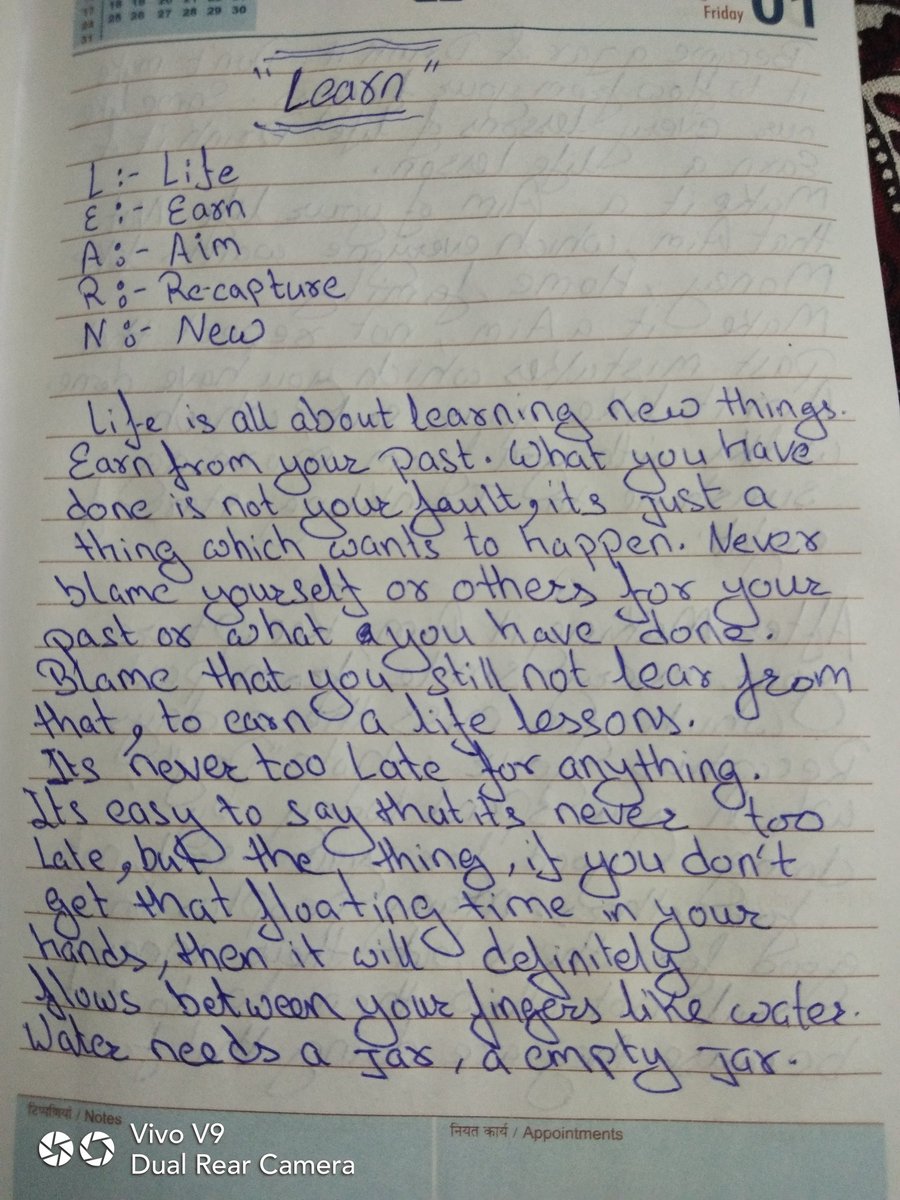 17 18 19 20 21 22 23
24 25 26 27 28 29 30
31
Friday 01
"Learn"
L :- Life
E :- Earn
A :- Aim
R :- Re-capture
N :- New
Life is all about learning new things.
Earn from your past. What you have
done is not your fault, its just a
thing which wants to happen. Never
blame yourself or others for your
past or what you have done.
Blame that you still not lear from
that, to earn a life lessons.
Its never too Late for anything.
Its easy to say that its never too
Late, but the thing, if you don't
get that floating time in your
hands, then it will definitely
flows between your fingers like water.
Water needs a Jar, a empty Jar.
टिप्पणियां / Notes
नियत कार्य / Appointments
Vivo V9
Dual Rear Camera